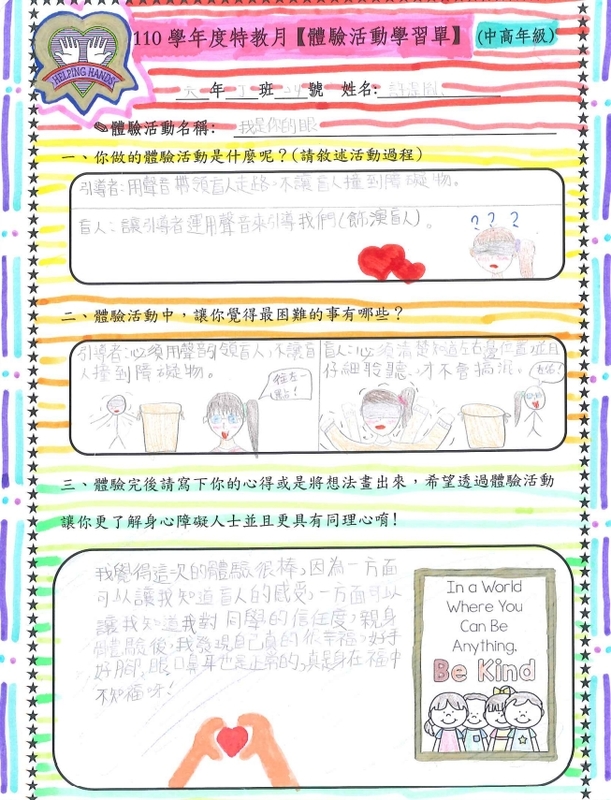 HELPING HANDS
110 學年度特教月【體驗活動學習單】(中高年級)
六年丁班24號 姓名:
✎體驗活動名稱: 我是你的眼
一、你做的體驗活動是什麼呢?(請敘述活動過程)
引導者:用聲音帶領盲人走路,不讓盲人撞到障礙物。
盲人:讓引導者運用聲音來引導我們(飾演盲人)。
? ? ?
二、體驗活動中,讓你覺得最困難的事有哪些?
引導者:必須用聲音引領盲人,不讓盲
人撞到障礙物。
往左一
點!
盲人:必須清楚知道左右邊位置並且
仔細聆聽,才不會搞混。
三、體驗完後請寫下你的心得或是將想法畫出來,希望透過體驗活動
讓你更了解身心障礙人士並且更具有同理心唷!
我覺得這次的體驗很棒,因為一方面
可以讓我知道盲人的感受,一方面可以
讓我知道我對同學的信任度,親身
體驗後,我發現自己真的很幸福,好手
好腳,眼口鼻耳也是正常的,真是身在福中
不知福呀!
In a World
Where You
Can Be
Anything.
Be Kind